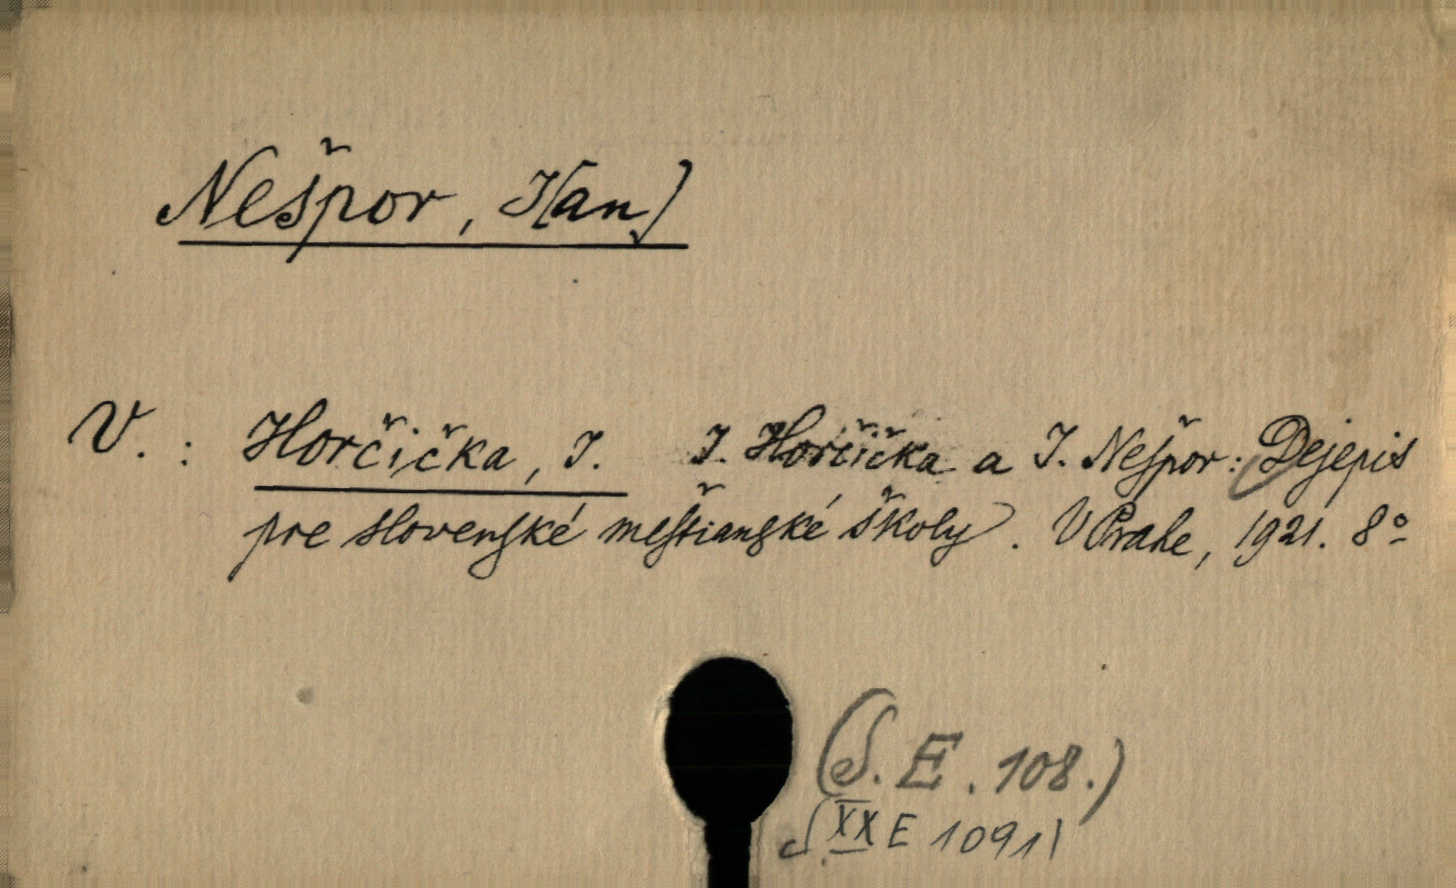 Nešpor, J[an]
V. : Horčička, J. J. Horčička a J. Nešpor: Dejepis
pre slovenské meštianské školy. V Prahe, 1921. 8°
(S. E. 108.)
XX E 1091